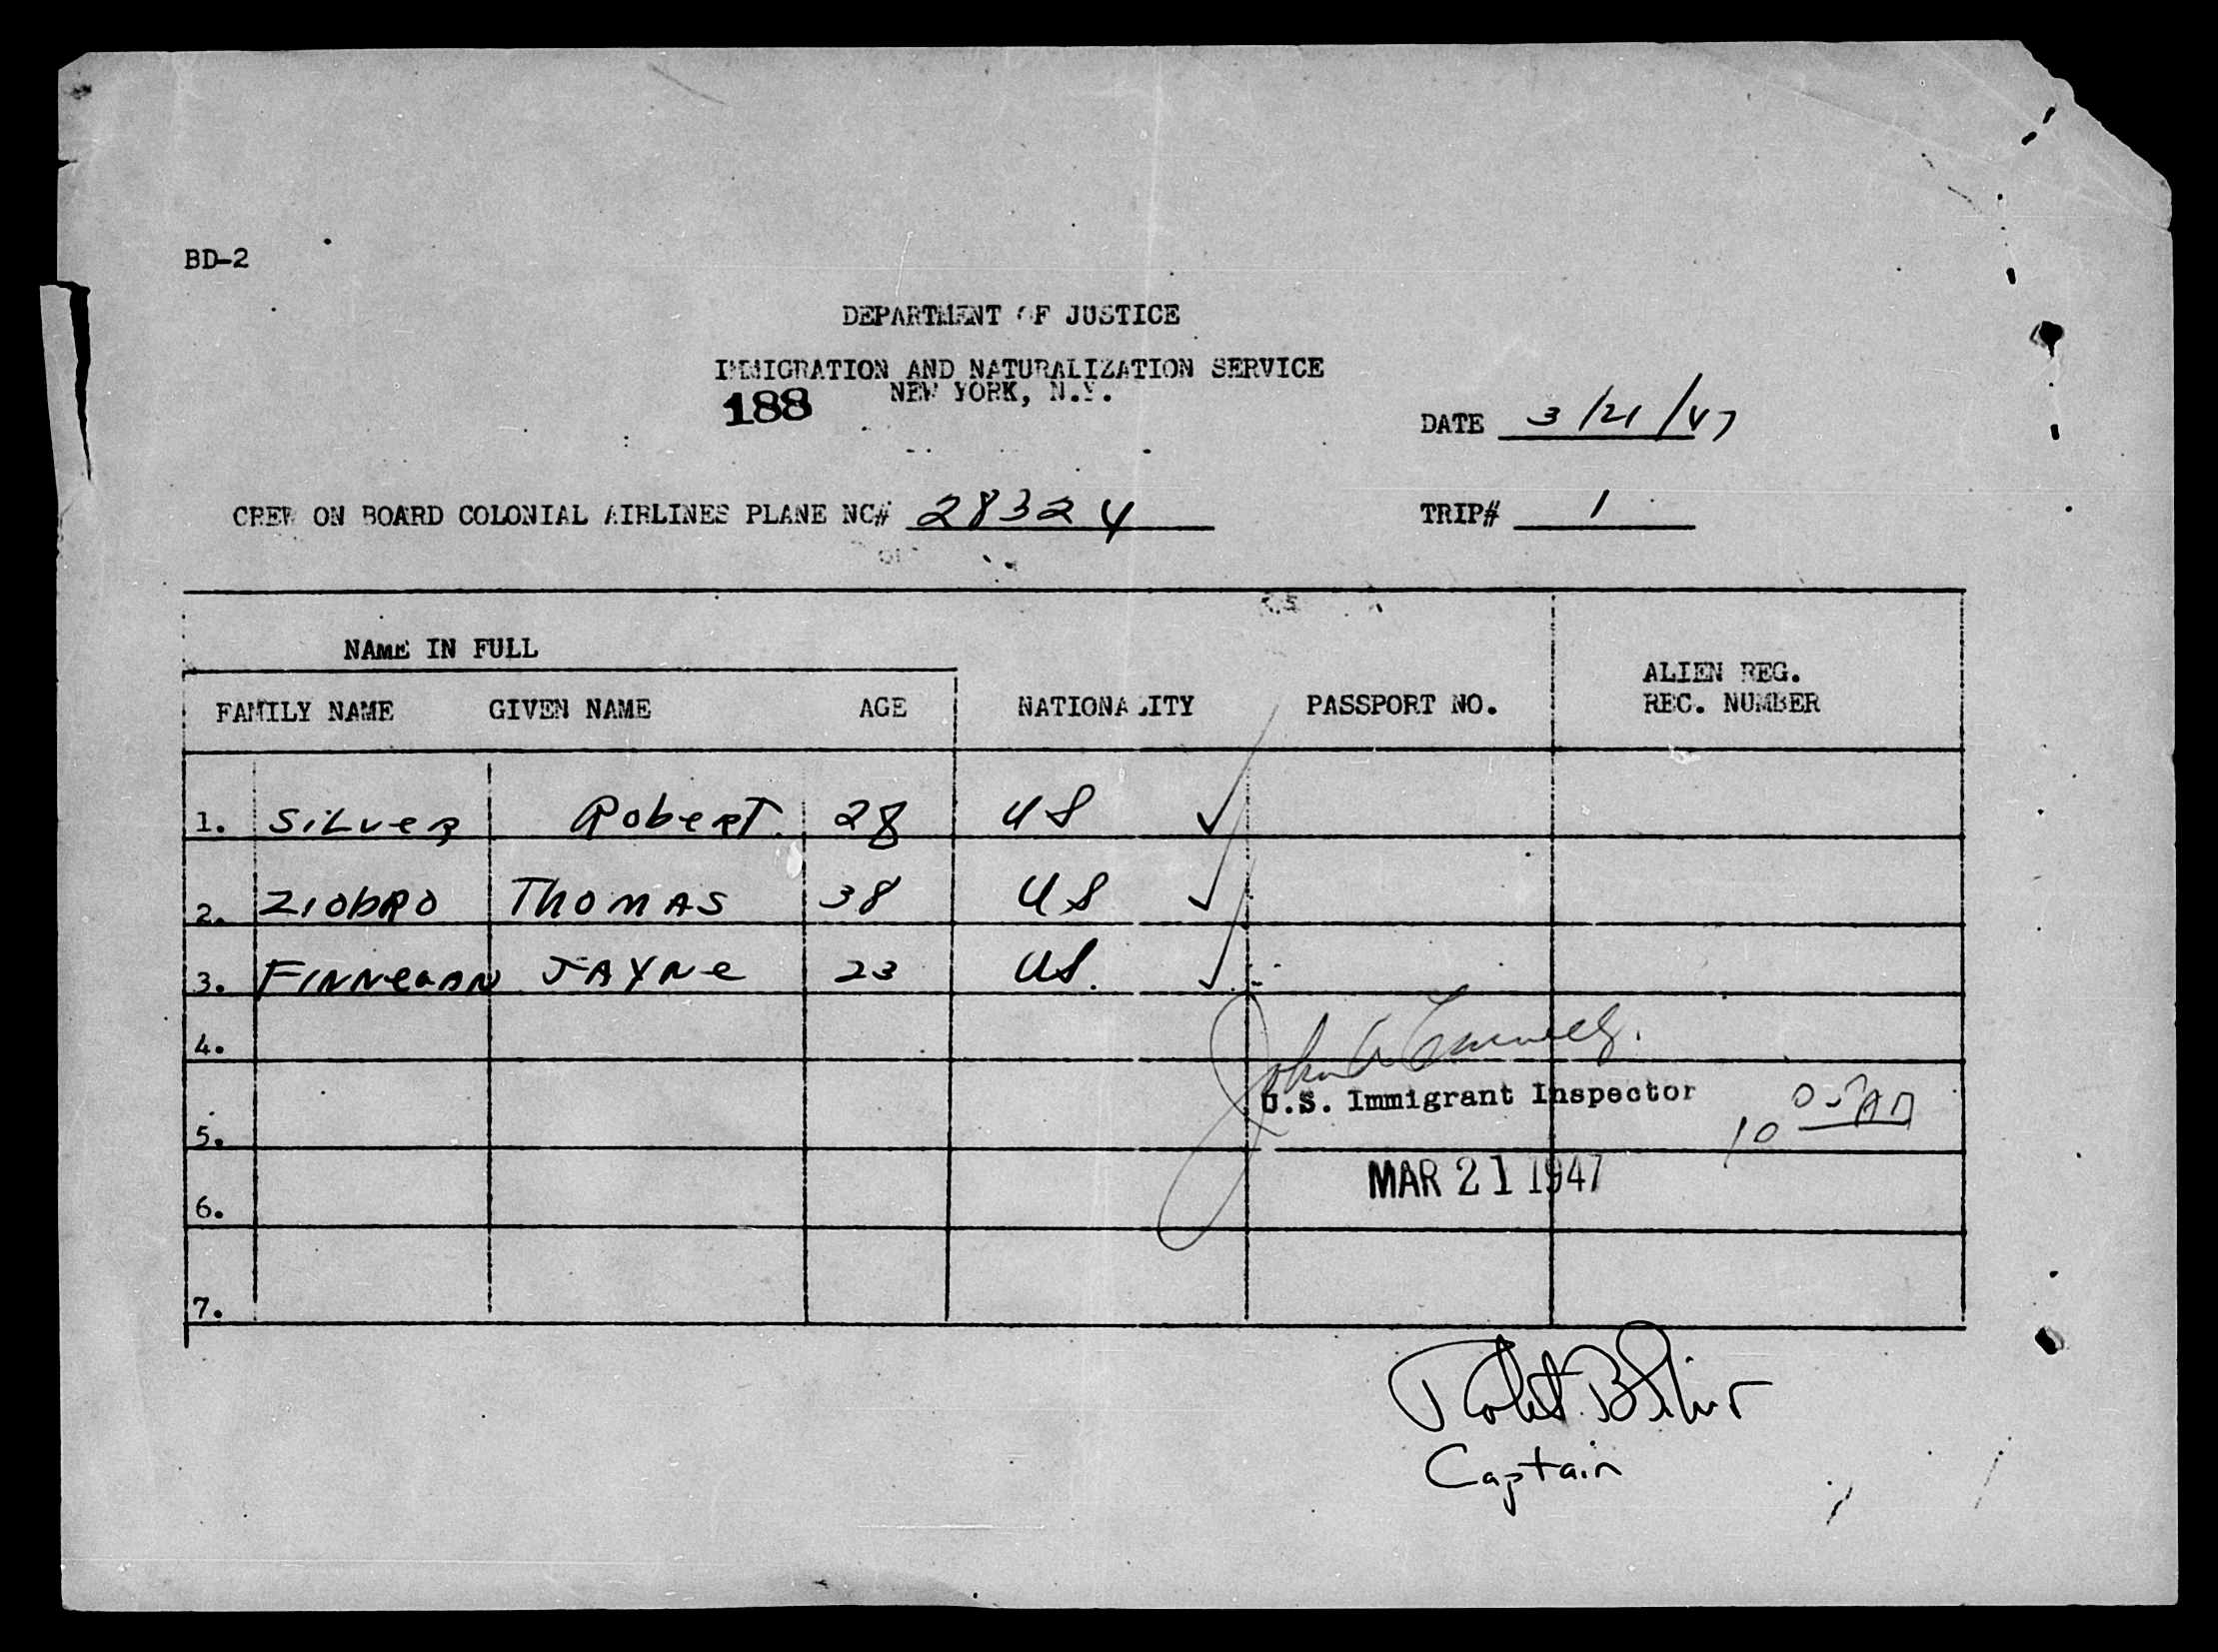 BD-2
DEPARTMENT OF JUSTICE
IMMIGRATION AND NATURALIZATION SERVICE
188 NEW YORK, N.Y.
DATE 3/21/47
CREW ON BOARD COLONIAL AIRLINES PLANE NC# 28324 TRIP# 1
NAME IN FULL
ALIEN REG.
FAMILY NAME GIVEN NAME AGE NATIONALITY PASSPORT NO. REC. NUMBER
1. SILVER Robert 28 US ✓
2. ZIObRO THOMAS 38 US ✓
3. FINNEGAN JAYNe 23 US. ✓
4.
John A
U.S. Immigrant Inspector
10 05 AM
5.
MAR 21 1947
6.
7.
Robert B Silver
Captain